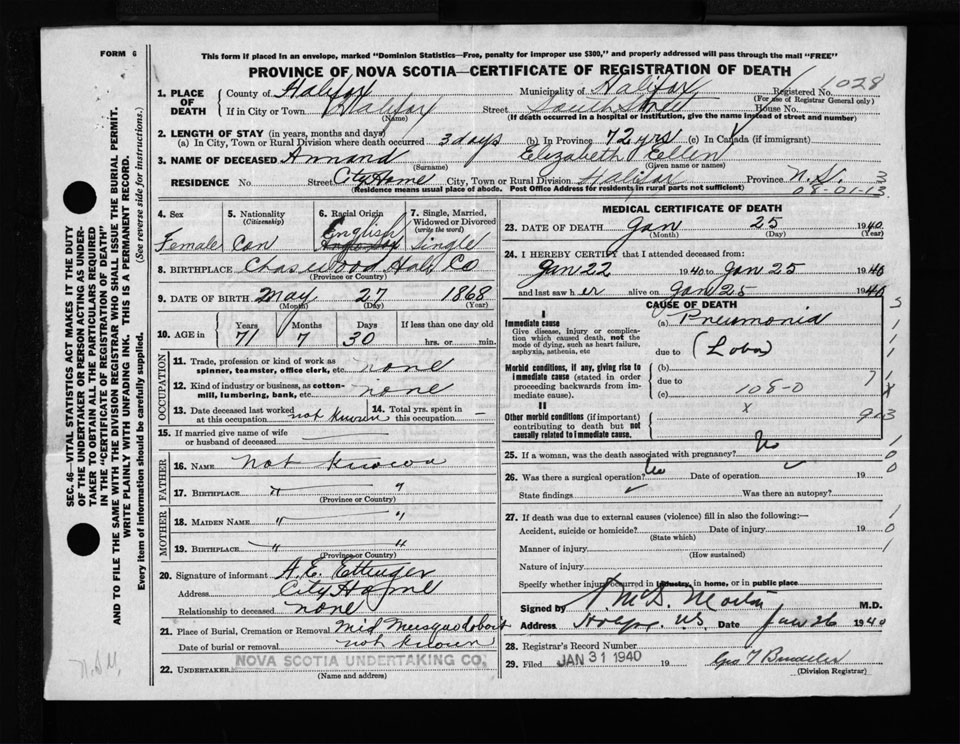 FORM 6
This form if placed in an envelope, marked "Dominion Statistics—Free, penalty for improper use $300," and properly addressed will pass through the mail "FREE"
PROVINCE OF NOVA SCOTIA—CERTIFICATE OF REGISTRATION OF DEATH
1028
1. PLACE OF DEATH County of Halifax Municipality of Halifax Registered No.
(For use of Registrar General only)
If in City or Town Halifax Street South Street House No.
(Name) (If death occurred in a hospital or institution, give the name instead of street and number)
2. LENGTH OF STAY (in years, months and days)
(a) In City, Town or Rural Division where death occurred 3 days (b) In Province 72 yrs (c) In Canada (if immigrant)
3. NAME OF DECEASED Annand Elizabeth Ellen
(Surname) (Given name or names)
RESIDENCE No Street City Home City, Town or Rural Division Halifax Province N.S. 3
(Residence means usual place of abode. Post Office Address for residents in rural parts not sufficient) 08-01-13
4. Sex 5. Nationality 6. Racial Origin 7. Single, Married, Widowed or Divorced
(Citizenship) (write the word)
Female Can English Single
8. BIRTHPLACE Chaswood Hali Co
(Province or Country)
9. DATE OF BIRTH May 27 1868
(Month) (Day) (Year)
10. AGE in Years Months Days If less than one day old
71 7 30 hrs. or min.
OCCUPATION
11. Trade, profession or kind of work as spinner, teamster, office clerk, etc. none
12. Kind of industry or business, as cotton-mill, lumbering, bank, etc. none
13. Date deceased last worked at this occupation not known 14. Total yrs. spent in this occupation —
15. If married give name of wife or husband of deceased
FATHER
16. NAME not known
17. BIRTHPLACE " "
(Province or Country)
MOTHER
18. MAIDEN NAME " "
19. BIRTHPLACE " "
(Province or Country)
20. Signature of informant A. E. Ettinger
Address City Home
Relationship to deceased none
21. Place of Burial, Cremation or Removal Mid Musquodoboit
Date of burial or removal not known
22. UNDERTAKER NOVA SCOTIA UNDERTAKING CO.
(Name and address)
MEDICAL CERTIFICATE OF DEATH
23. DATE OF DEATH Jan 25 1940
(Month) (Day) (Year)
24. I HEREBY CERTIFY that I attended deceased from:
Jan 22 1940 to Jan 25 1940
and last saw her alive on Jan 25 1940
CAUSE OF DEATH
I
Immediate cause (a) Pneumonia
Give disease, injury or complication which caused death, not the mode of dying, such as heart failure, asphyxia, asthenia, etc
due to (Lobar)
Morbid conditions, if any, giving rise to immediate cause (stated in order proceeding backwards from immediate cause).
(b)
due to
(c) 108-0
II
Other morbid conditions (if important) contributing to death but not causally related to immediate cause.
x
25. If a woman, was the death associated with pregnancy? No
26. Was there a surgical operation? No Date of operation 19
State findings Was there an autopsy?
27. If death was due to external causes (violence) fill in also the following:—
Accident, suicide or homicide? Date of injury 19
(State which)
Manner of injury
(How sustained)
Nature of injury
Specify whether injury occurred in industry, in home, or in public place
Signed by M.D.
Address Date Jan 26 1940
28. Registrar's Record Number
29. Filed JAN 31 1940 19
(Division Registrar)
SEC. 46—VITAL STATISTICS ACT MAKES IT THE DUTY
OF THE UNDERTAKER OR PERSON ACTING AS UNDER-
TAKER TO OBTAIN ALL THE PARTICULARS REQUIRED
IN THE "CERTIFICATE OF REGISTRATION OF DEATH"
AND TO FILE THE SAME WITH THE DIVISION REGISTRAR WHO SHALL ISSUE THE BURIAL PERMIT.
WRITE PLAINLY WITH UNFADING INK. THIS IS A PERMANENT RECORD.
Every item of information should be carefully supplied. (See reverse side for instructions.)